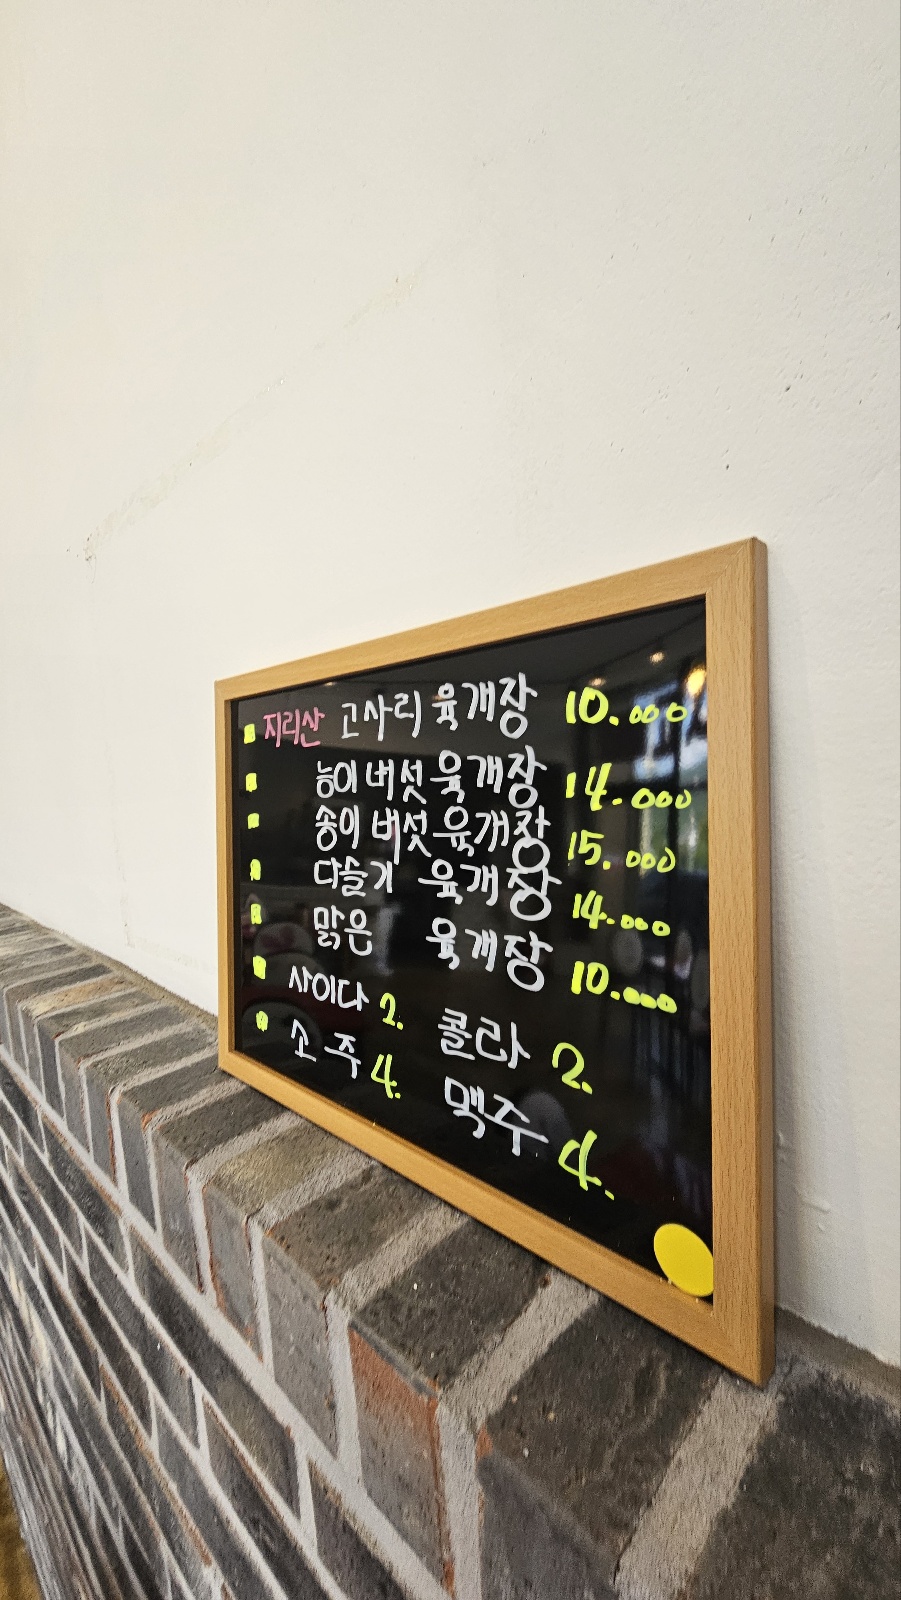 지리산 고사리 육개장 10.000
능이버섯 육개장 14.000
송이버섯 육개장 15.000
다슬기 육개장 14.000
맑은 육개장 10.000
사이다 2. 콜라 2.
소주 4. 맥주 4.